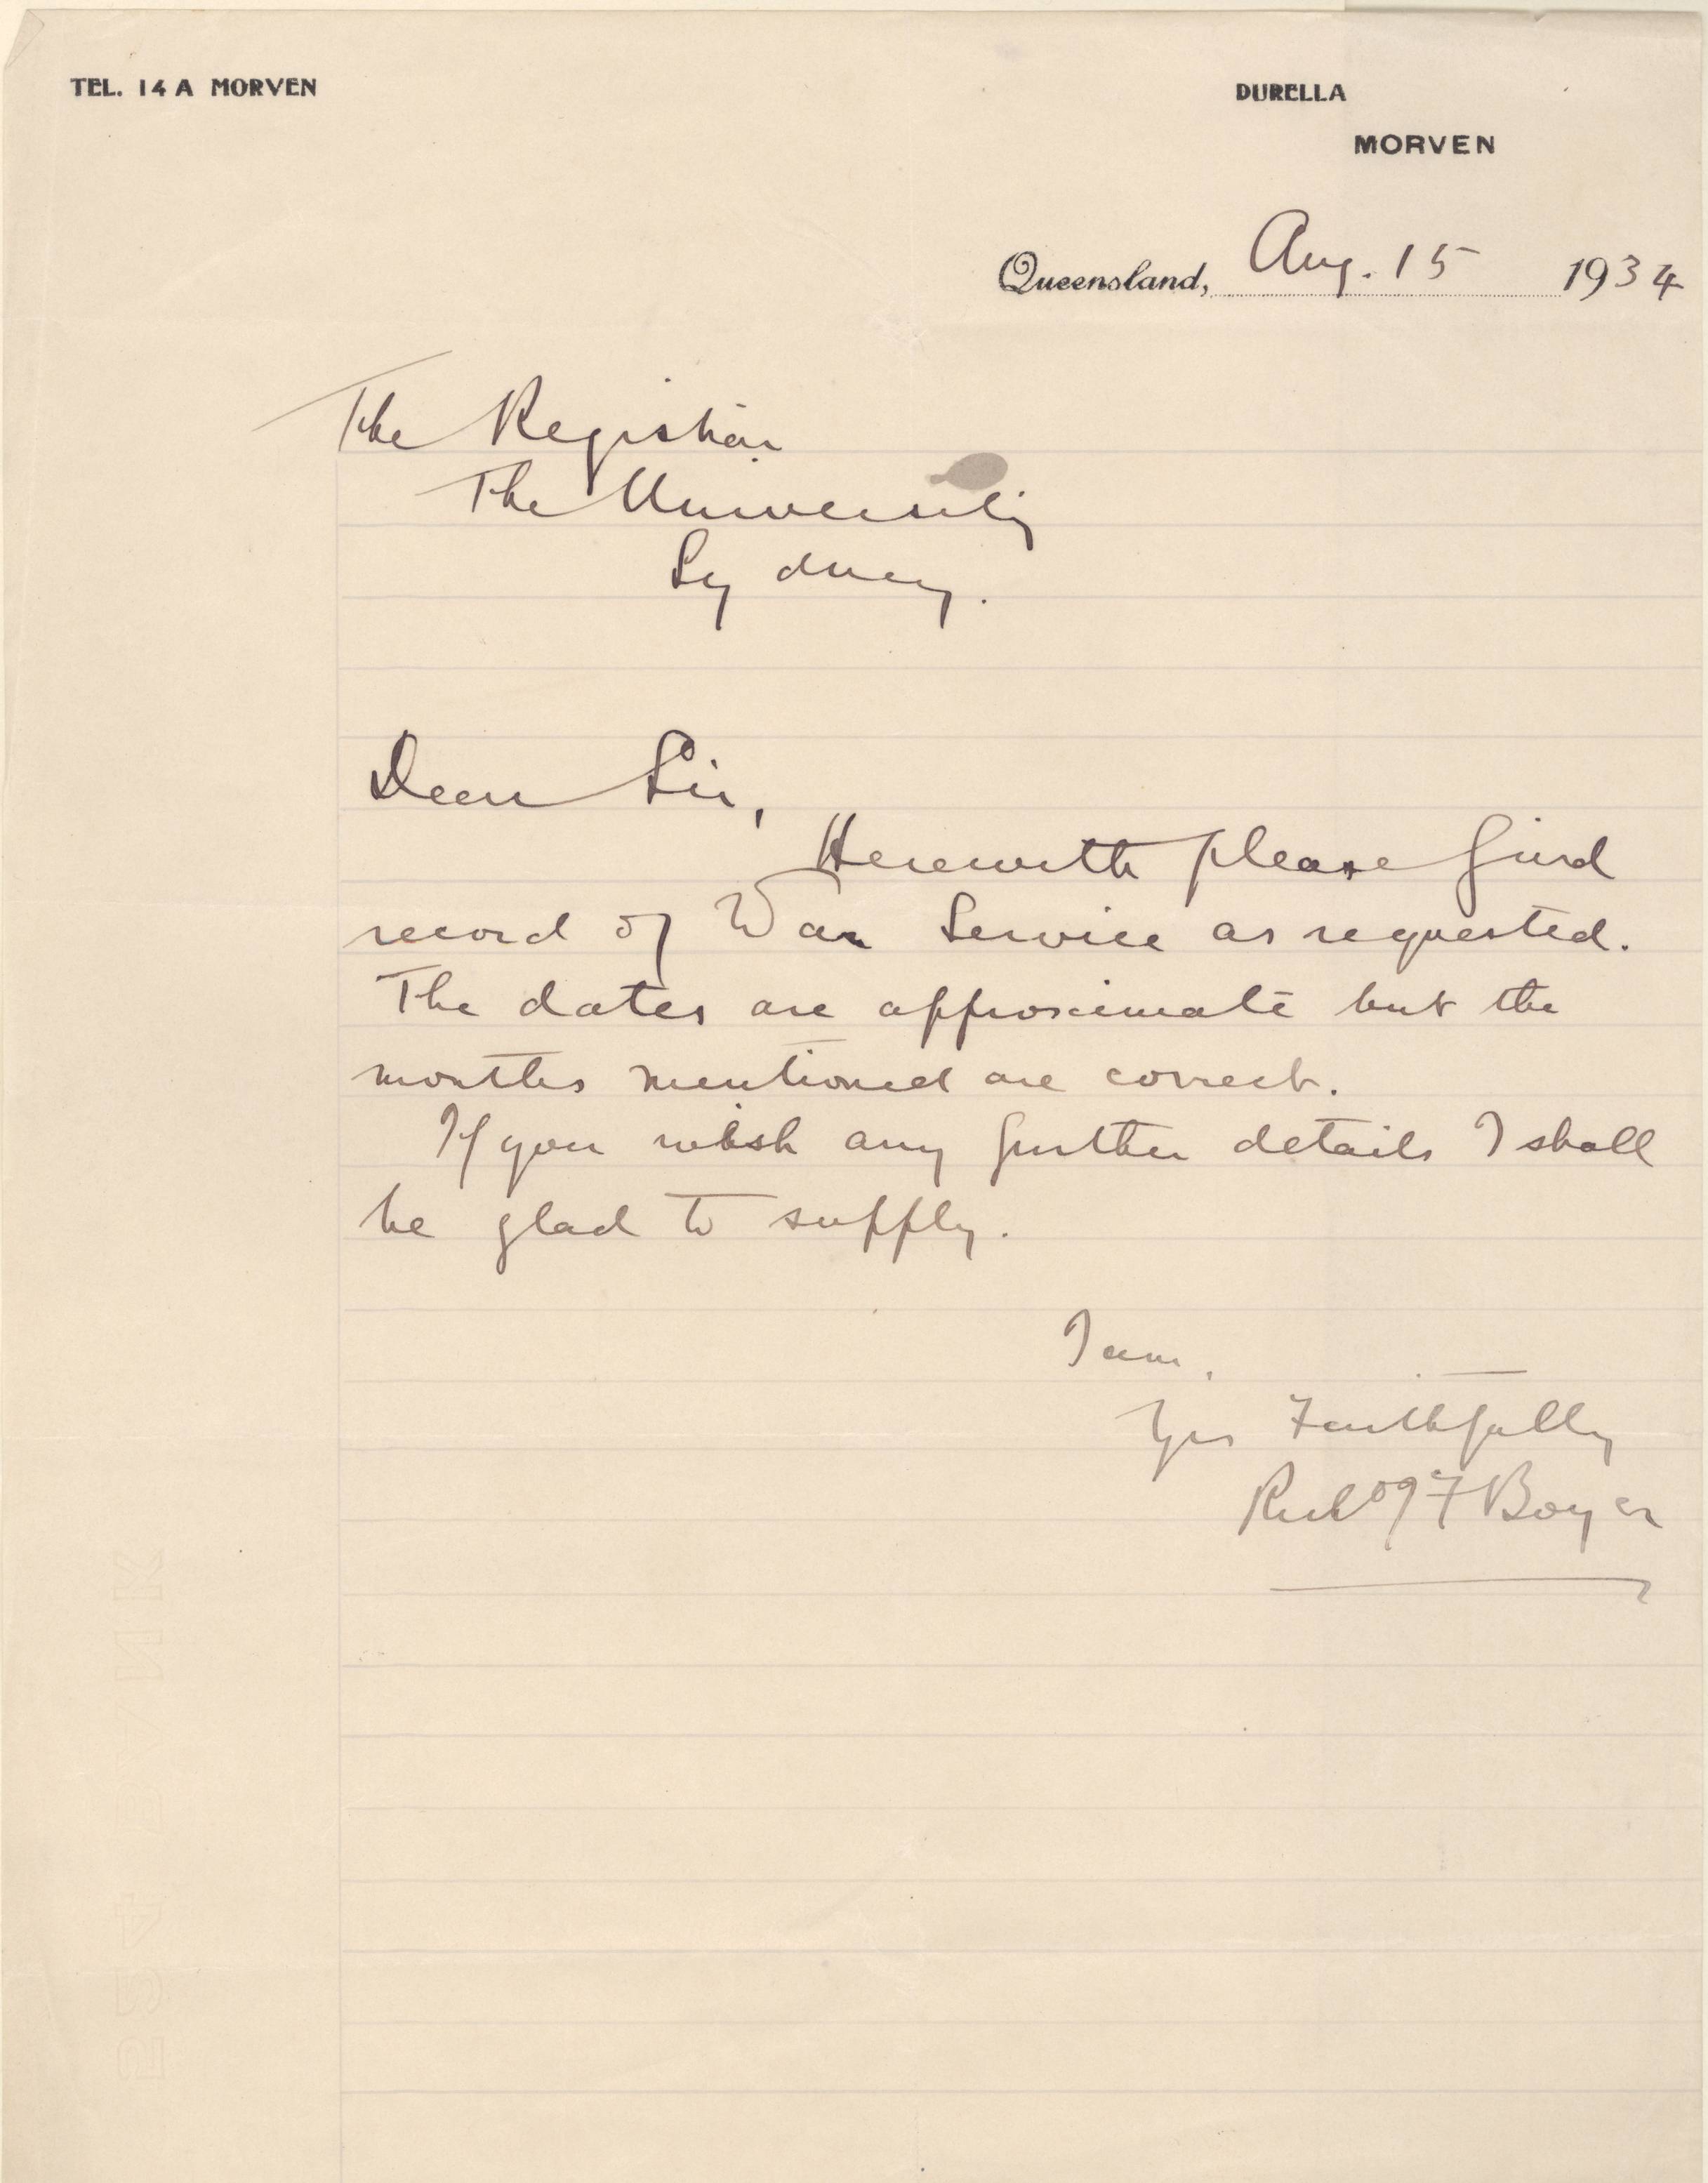 TEL. 14 A MORVEN
DURELLA
MORVEN
Queensland, Aug. 15 1934
The Registrar
The University
Sydney.
Dear Sir,
Herewith please find
record of War Service as requested.
The dates are approximate but the
months mentioned are correct.
If you wish any further details I shall
be glad to supply.
I am,
Yrs Faithfully
Richd F Boyer